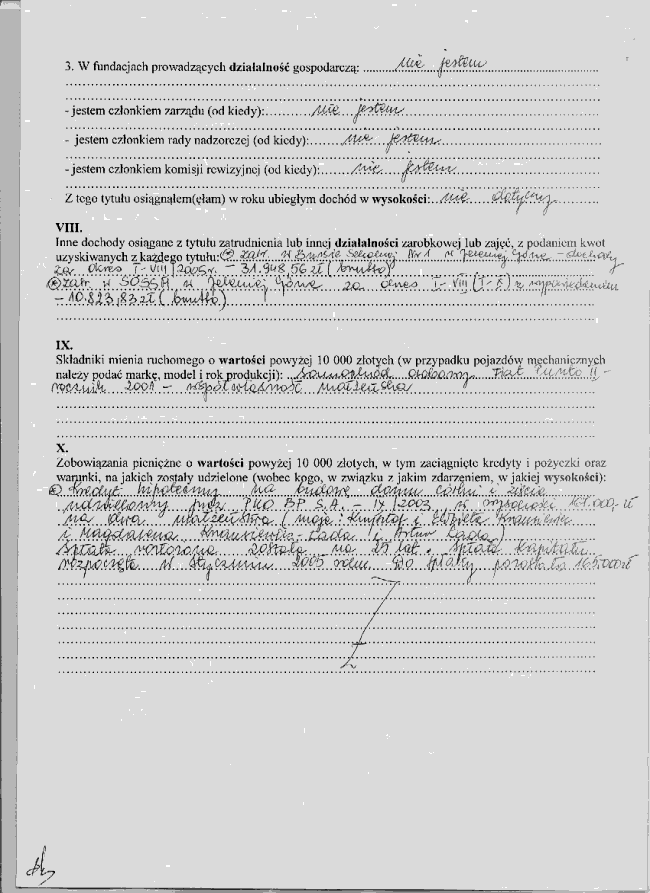 3. W fundacjach prowadzących działalność gospodarczą: nie jestem
- jestem członkiem zarządu (od kiedy): nie jestem
- jestem członkiem rady nadzorczej (od kiedy): nie jestem
- jestem członkiem komisji rewizyjnej (od kiedy): nie jestem
Z tego tytułu osiągnąłem(ęłam) w roku ubiegłym dochód w wysokości: nie dotyczy
VIII.
Inne dochody osiągane z tytułu zatrudnienia lub innej działalności zarobkowej lub zajęć, z podaniem kwot
uzyskiwanych z każdego tytułu: zatr. w Szkolnej Nr 1 w Jeleniej Górze - dochody
za okres I-VIII/2005r. - 31.948,56 zł (brutto)
zatr. w SOSSW w Jeleniej Górze za okres I-VIII
- 10.823,83 zł (brutto)
IX.
Składniki mienia ruchomego o wartości powyżej 10 000 złotych (w przypadku pojazdów mechanicznych
należy podać markę, model i rok produkcji): Samochód osobowy Fiat Punto II -
rocznik 2001 - współwłasność małżeńska
X.
Zobowiązania pieniężne o wartości powyżej 10 000 złotych, w tym zaciągnięte kredyty i pożyczki oraz
warunki, na jakich zostały udzielone (wobec kogo, w związku z jakim zdarzeniem, w jakiej wysokości):
Kredyt hipoteczny na budowę domu córki i zięcia
udzielony przez PKO BP S.A. - 2003 w wysokości zł
na dwa małżeństwa (moje: i Elżbieta
i Magdalena Łada i Artur Łada)
Spłata rozłożona została na 25 lat. Spłata kapitału
rozpoczęta w styczniu 2005 roku. Do spłaty pozostało 165.000 zł